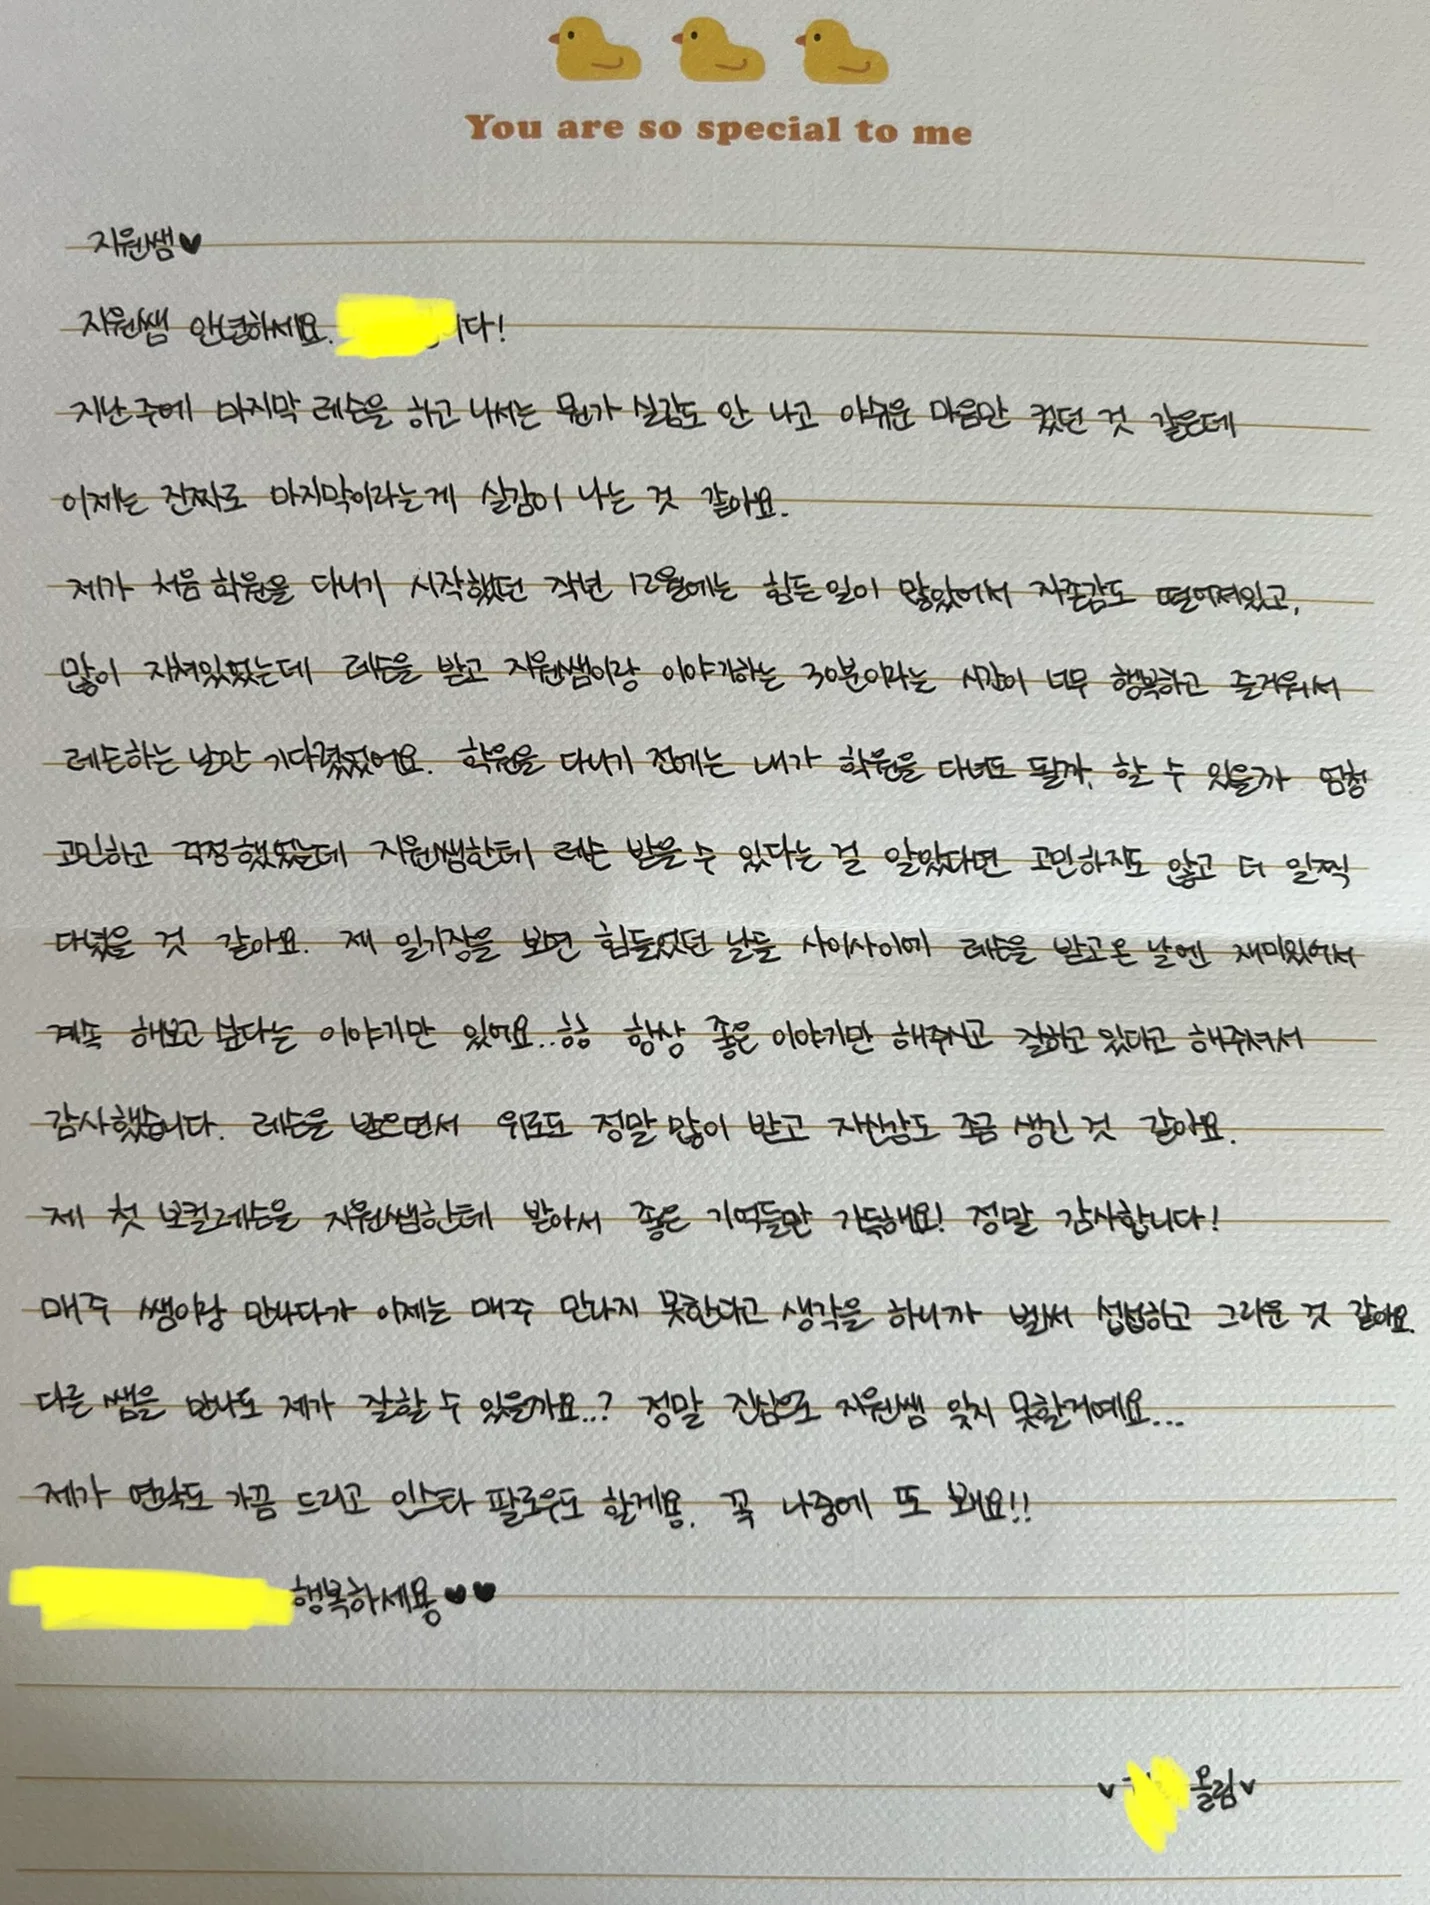 You are so special to me
지원쌤♥
지원쌤 안녕하세요. 니다!
지난주에 마지막 레슨을 하고 나서는 뭔가 실감도 안 나고 아쉬운 마음만 컸던 것 같은데
이제는 진짜로 마지막이라는게 실감이 나는 것 같아요.
제가 처음 학원을 다니기 시작했던 작년 12월에는 힘든일이 많았어서 자존감도 떨어져있고,
많이 지쳐있었는데 레슨을 받고 지원쌤이랑 이야기하는 30분이라는 시간이 너무 행복하고 즐거워서
레슨하는 날만 기다렸었어요. 학원을 다니기 전에는 내가 학원을 다녀도 될까, 할 수 있을까 엄청
고민하고 걱정했었는데 지원쌤한테 레슨 받을 수 있다는 걸 알았다면 고민하지도 않고 더 일찍
다녔을 것 같아요. 제 일기장을 보면 힘들었던 날들 사이사이에 레슨을 받고온 날엔 재미있어서
계속 해보고 싶다는 이야기만 있어요..ㅎㅎ 항상 좋은 이야기만 해주시고 잘하고 있다고 해주셔서
감사했습니다. 레슨을 받으면서 위로도 정말 많이 받고 자신감도 조금 생긴 것 같아요.
제 첫 보컬레슨을 지원쌤한테 받아서 좋은 기억들만 가득해요! 정말 감사합니다!
매주 쌤이랑 만나다가 이제는 매주 만나지 못한다고 생각을 하니까 벌써 섭섭하고 그리운 것 같아요.
다른 쌤을 만나도 제가 잘할 수 있을까요..? 정말 진심으로 지원쌤 잊지 못할거예요...
제가 연락도 가끔 드리고 인스타 팔로우도 할게용. 꼭 나중에 또 봬요!!
행복하세용♥♥
♥ 올림♥